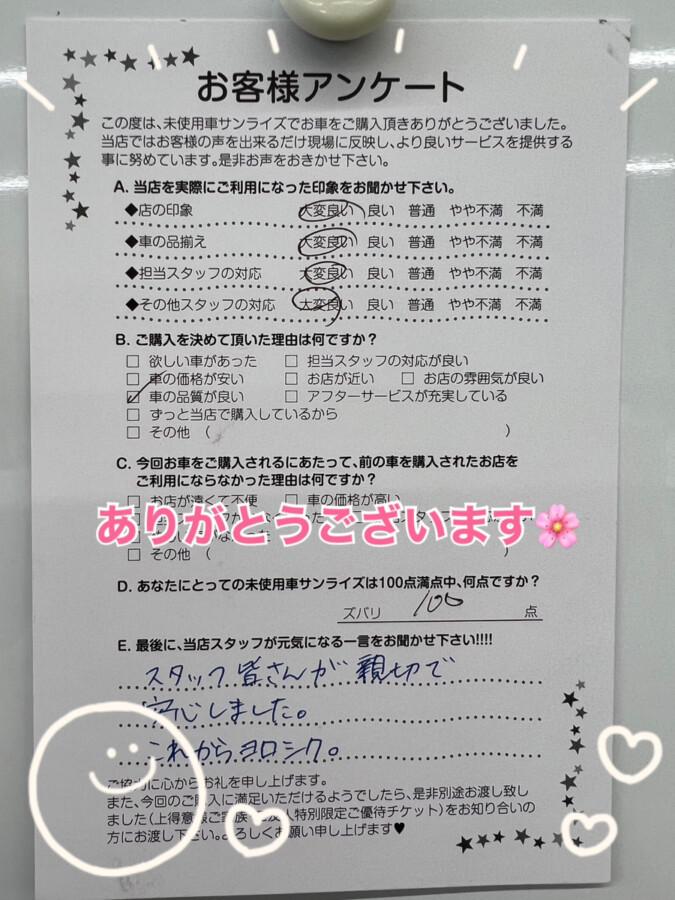 お客様アンケート
この度は、未使用車サンライズでお車をご購入頂きありがとうございました。
当店ではお客様の声を出来るだけ現場に反映し、より良いサービスを提供する
事に努めています。是非お声をおきかせ下さい。
A. 当店を実際にご利用になった印象をお聞かせ下さい。
◆店の印象 大変良い 良い 普通 やや不満 不満
◆車の品揃え 大変良い 良い 普通 やや不満 不満
◆担当スタッフの対応 大変良い 良い 普通 やや不満 不満
◆その他スタッフの対応 大変良い 良い 普通 やや不満 不満
B. ご購入を決めて頂いた理由は何ですか？
□ 欲しい車があった □ 担当スタッフの対応が良い
□ 車の価格が安い □ お店が近い □ お店の雰囲気が良い
☑ 車の品質が良い □ アフターサービスが充実している
□ ずっと当店で購入しているから
□ その他 ( )
C. 今回お車をご購入されるにあたって、前の車を購入されたお店を
ご利用にならなかった理由は何ですか？
□ お店が遠くて不便 □ 車の価格が高い
ありがとうございます🌸
□ その他 ( )
D. あなたにとっての未使用車サンライズは100点満点中、何点ですか？
ズバリ 100 点
E. 最後に、当店スタッフが元気になる一言をお聞かせ下さい!!!!
スタッフ皆さんが親切で
安心しました。
これからヨロシク。
ご協力に心からお礼を申し上げます。
また、今回のご購入に満足いただけるようでしたら、是非別途お渡し致し
ました(上得意様ご家族 特別限定ご優待チケット)をお知り合いの
方にお渡し下さい。よろしくお願い申し上げます♥